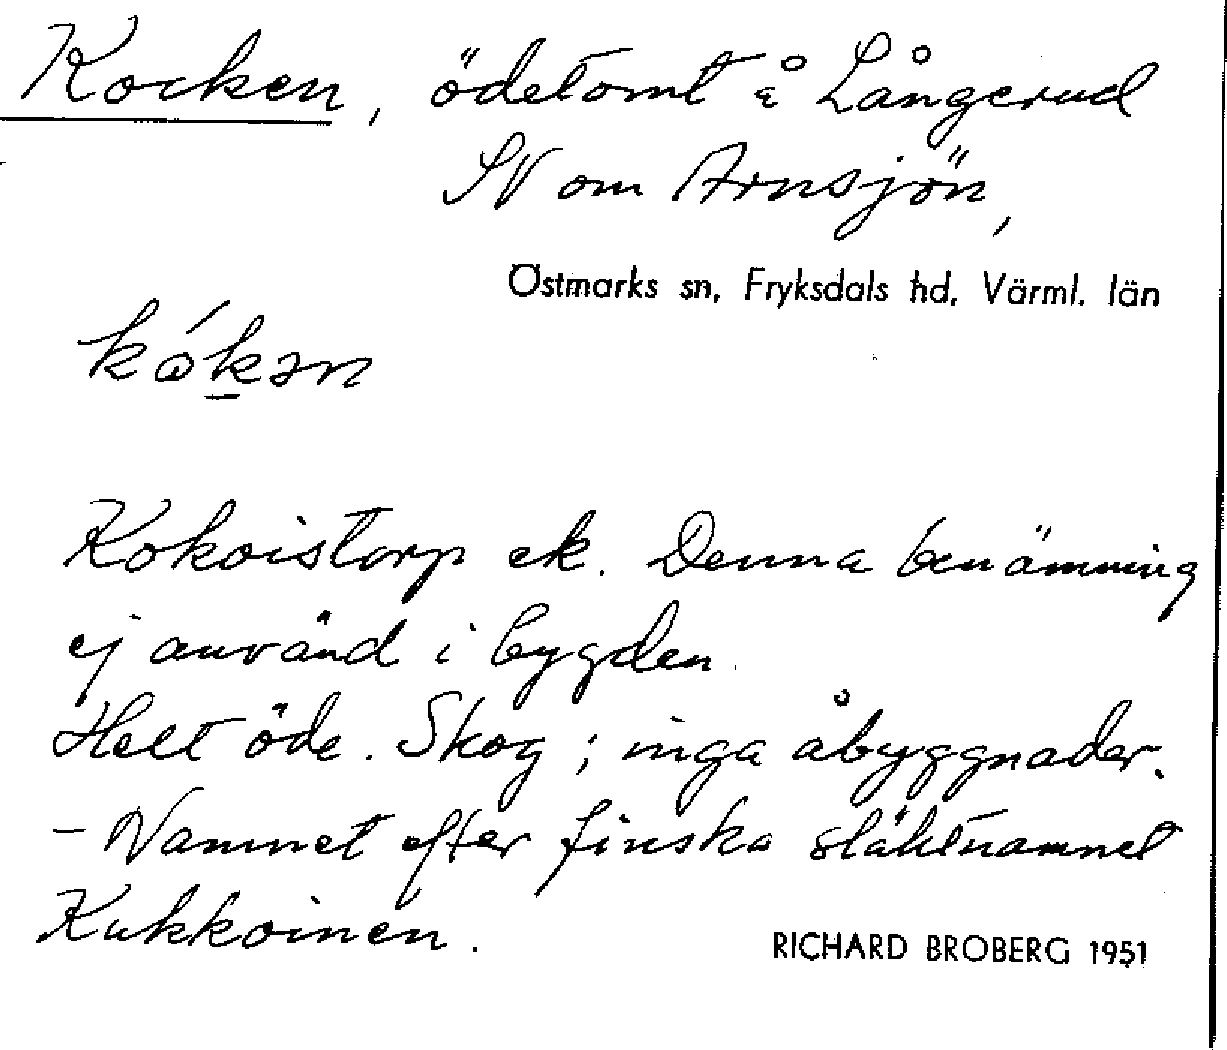 Kocken, ödetomt å Långerud
SV om Arnsjön,
Östmarks sn, Fryksdals hd, Värml. län
kókən
Kokoistorp ek. Denna benämning
ej använd i bygden.
Helt öde. Skog; inga åbyggnader.
- Namnet efter finska släktnamnet
Kukkoinen.
RICHARD BROBERG 1951